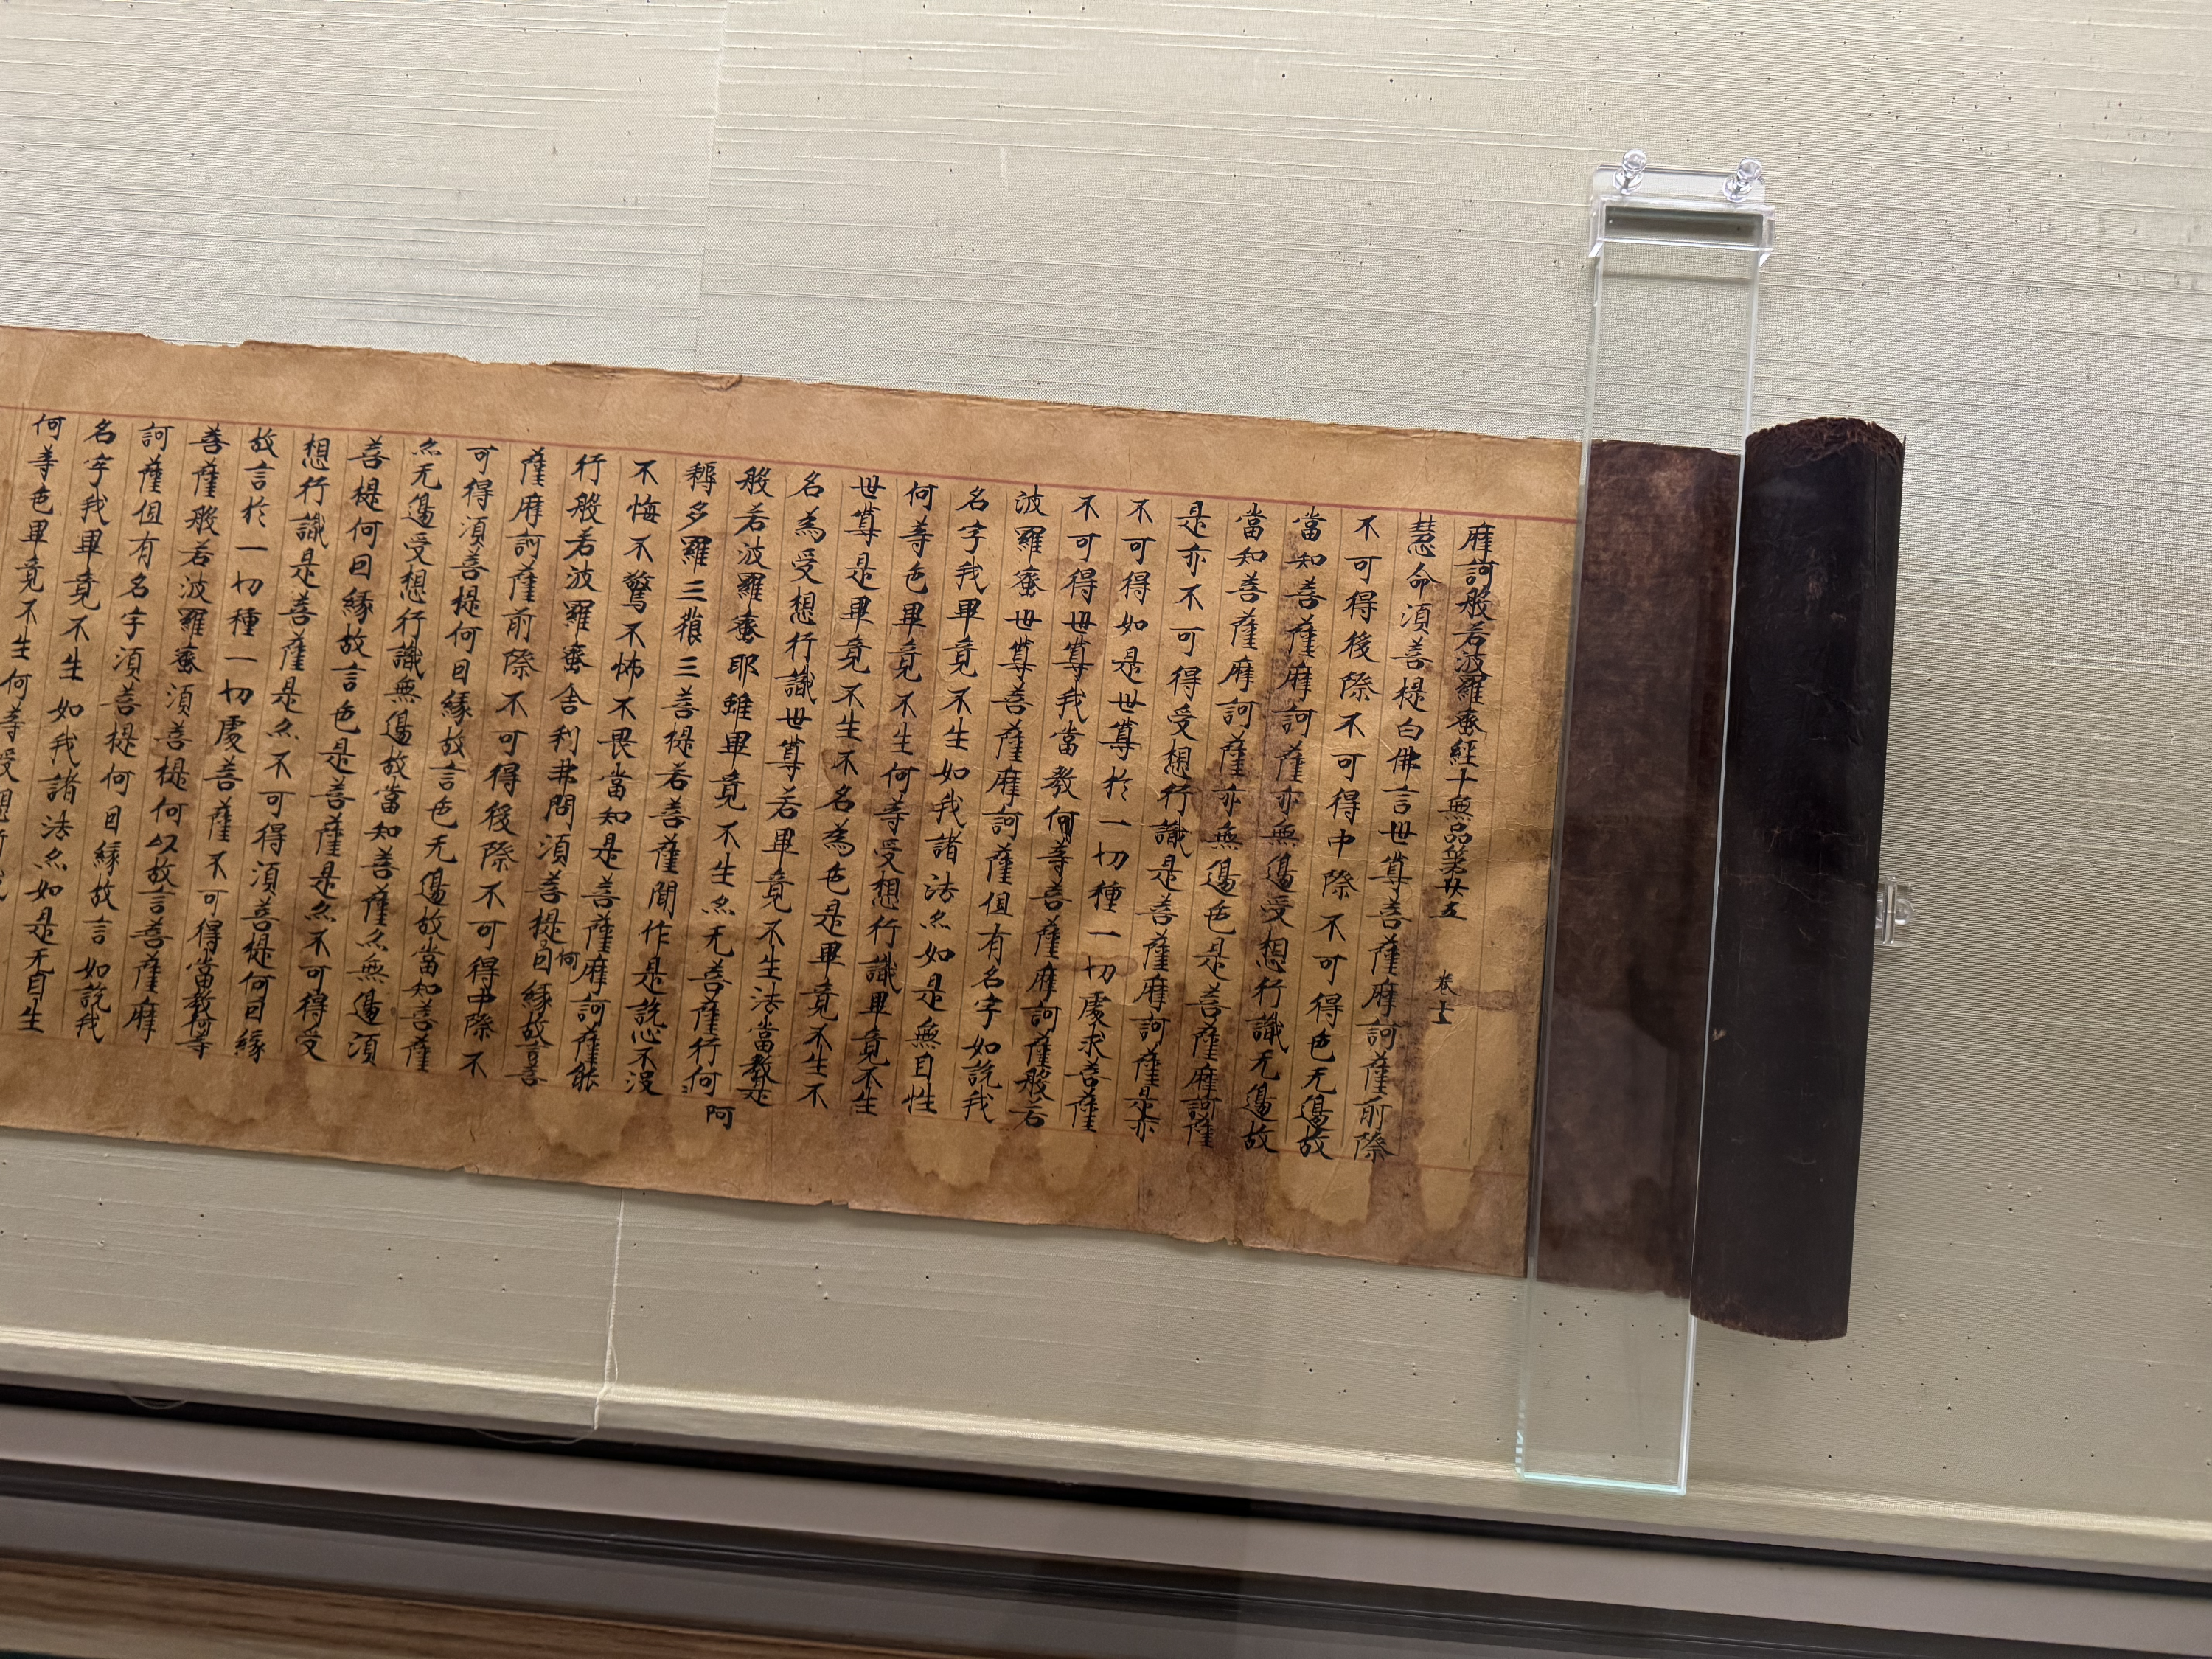 摩訶般若波羅蜜經十無品第廿五 卷十五
慧命須菩提白佛言世尊菩薩摩訶薩前際
不可得後際不可得中際不可得色无邊故
當知菩薩摩訶薩亦無邊受想行識无邊故
當知菩薩摩訶薩亦無邊色是菩薩摩訶薩
是亦不可得受想行識是菩薩摩訶薩是亦
不可得如是世尊於一切種一切處求菩薩
不可得世尊我當教何等菩薩摩訶薩般若
波羅蜜世尊菩薩摩訶薩但有名字如說我
名字我畢竟不生如我諸法亦如是無自性
何等色畢竟不生何等受想行識畢竟不生
世尊是畢竟不生不名為色是畢竟不生不
名為受想行識世尊若畢竟不生法當教是
般若波羅蜜耶離畢竟不生亦无菩薩行阿
耨多羅三藐三菩提若菩薩聞作是說心不沒
不悔不驚不怖不畏當知是菩薩摩訶薩能
行般若波羅蜜舍利弗問須菩提何因緣故言菩
薩摩訶薩前際不可得後際不可得中際不
可得須菩提何因緣故言色无邊故當知菩薩
亦无邊受想行識無邊故當知菩薩亦無邊須
菩提何因緣故言色是菩薩是亦不可得受
想行識是菩薩是亦不可得須菩提何因緣
故言於一切種一切處菩薩不可得當教何等
菩薩般若波羅蜜須菩提何以故言菩薩摩
訶薩但有名字須菩提何因緣故言如說我
名字我畢竟不生如我諸法亦如是无自性
何等色畢竟不生何等受想行識